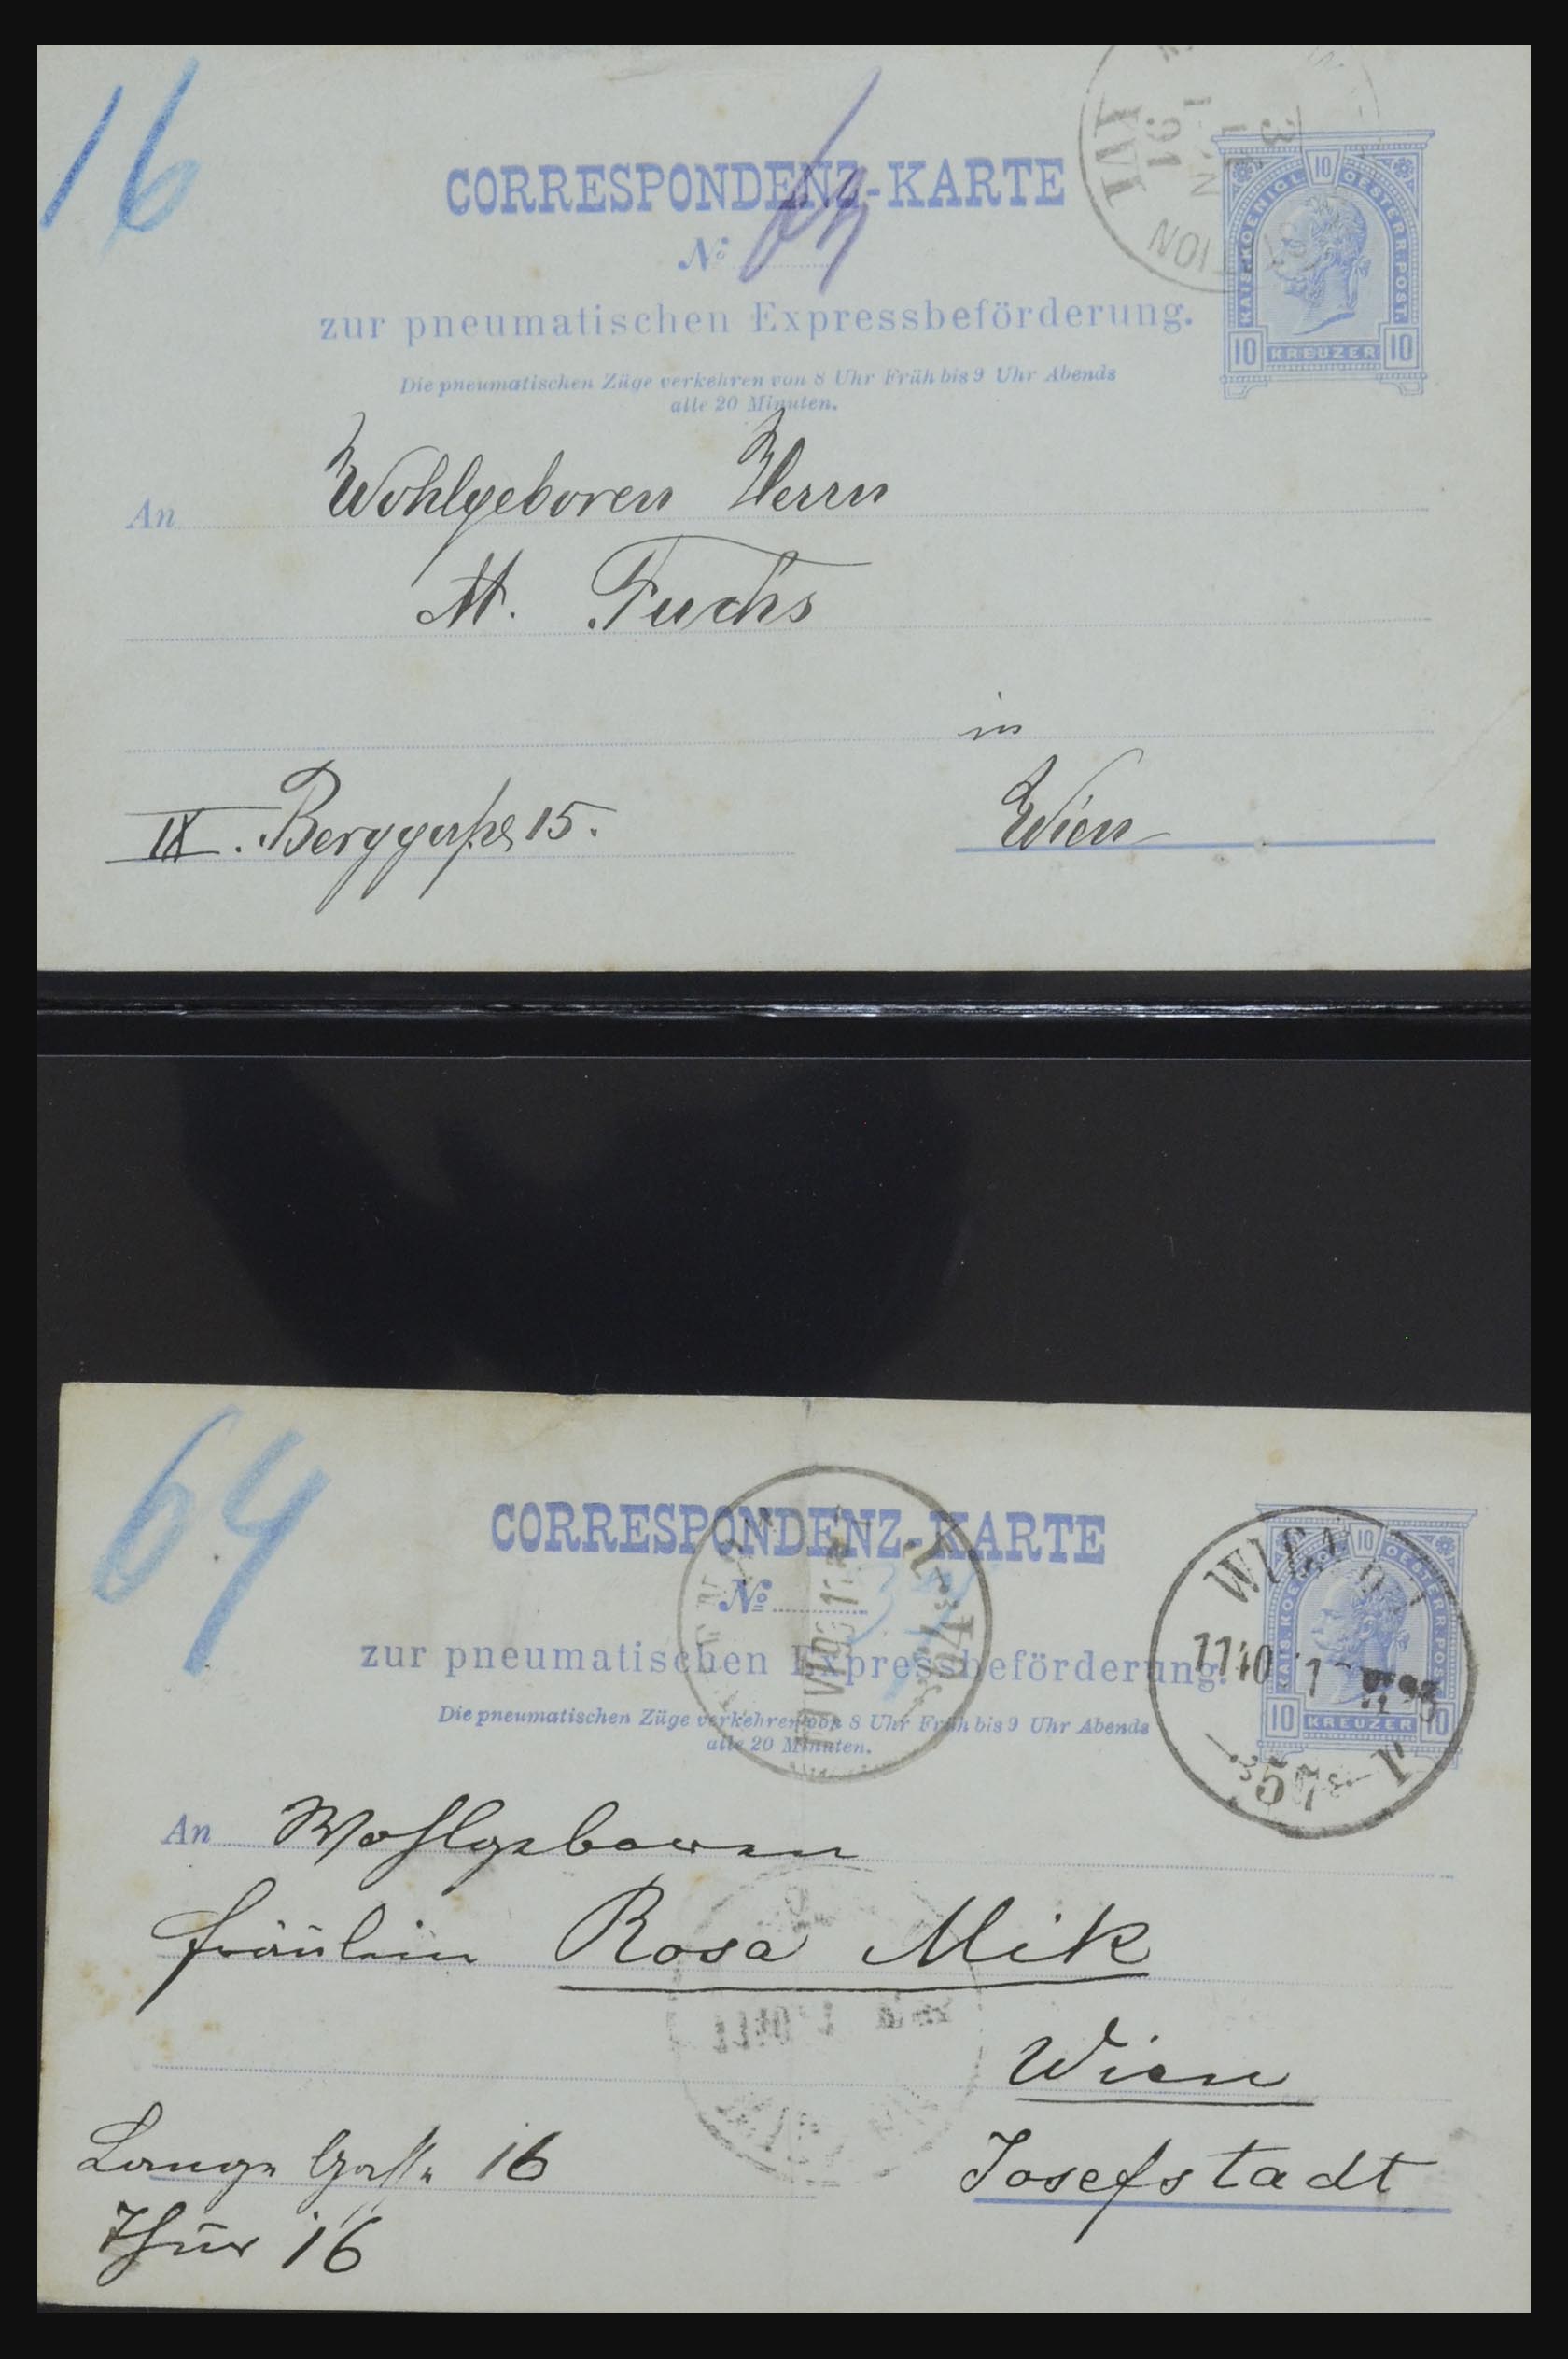 16
CORRESPONDENZ-KARTE
№
zur pneumatischen Expressbeförderung.
Die pneumatischen Züge verkehren von 8 Uhr Früh bis 9 Uhr Abends
alle 20 Minuten.
KAIS. KOENIGL. 10 OESTERR. POST
10 KREUZER 10
An Wohlgeboren Herrn
M. Fuchs
in
IX. Berggasse 15. Wien
64
CORRESPONDENZ-KARTE
№
zur pneumatischen Expressbeförderung.
Die pneumatischen Züge verkehren von 8 Uhr Früh bis 9 Uhr Abends
alle 20 Minuten.
10 OESTERR. POST
10 KREUZER 10
WIEN
1140
57
An Wohlgeboren
Fräulein Rosa Mik
Wien
Lange Gasse 16 Josefstadt
Thür 16